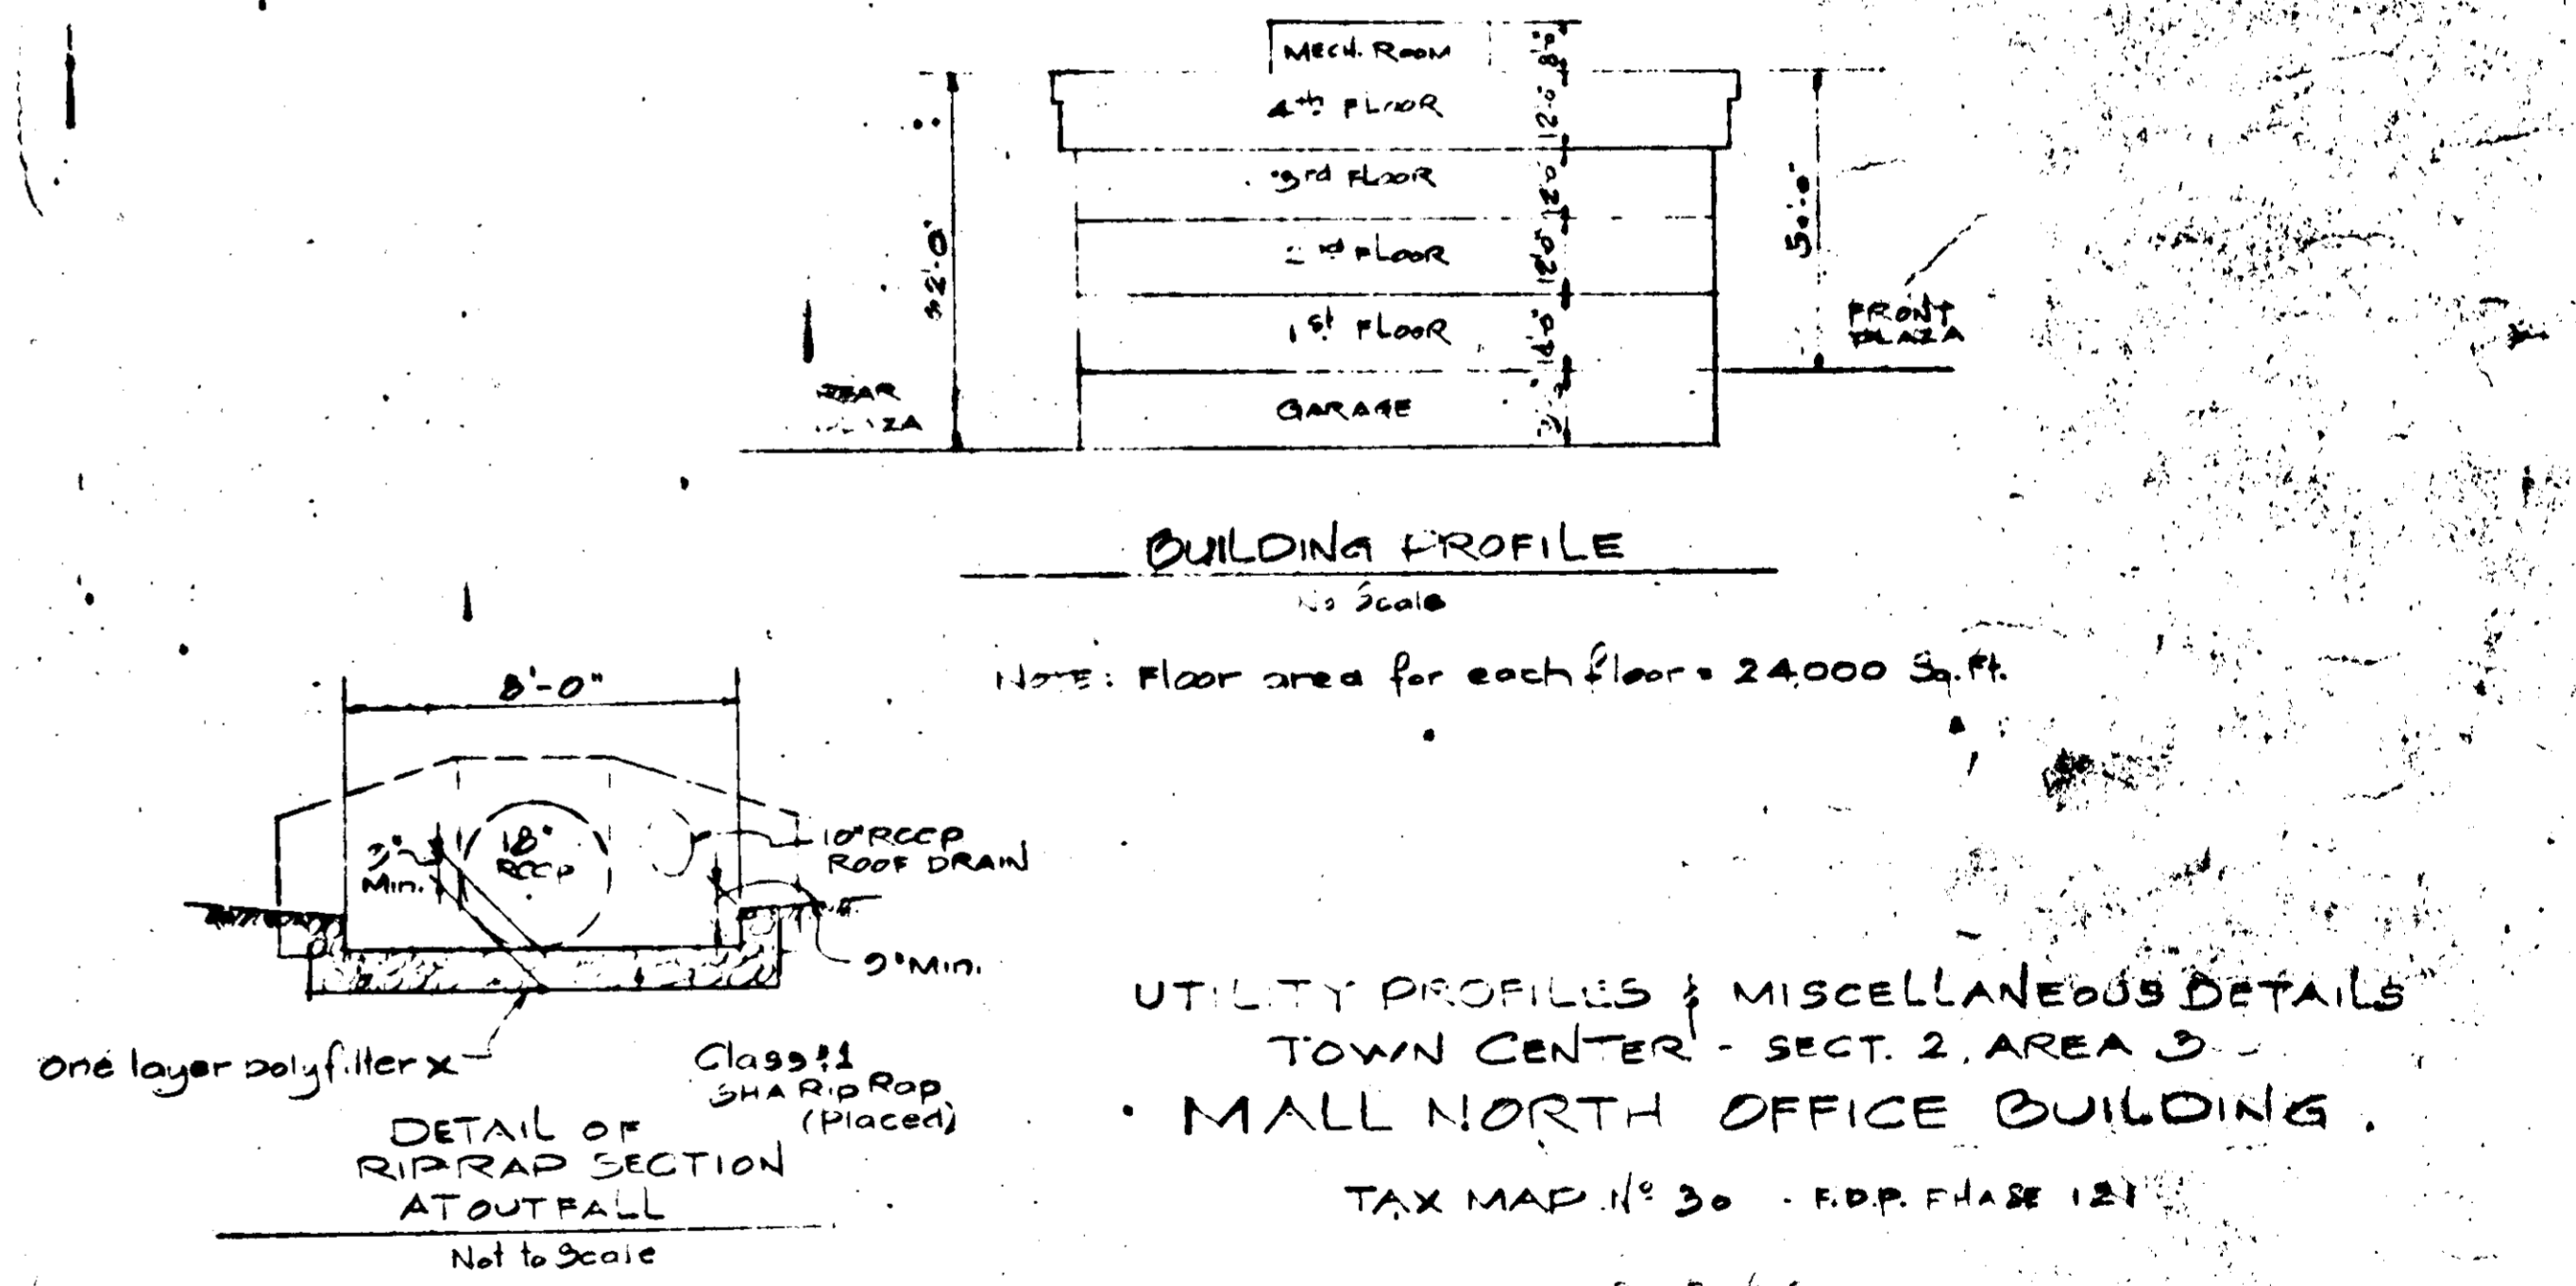 MECH. ROOM
8'-0"
4th FLOOR
12'-0"
3rd FLOOR
12'-0"
2nd FLOOR
12'-0"
1st FLOOR
14'-0"
GARAGE
50'-0"
FRONT
PLAZA
REAR
PLAZA
BUILDING PROFILE
No Scale
NOTE: Floor area for each floor = 24,000 Sq. Ft.
8'-0"
18"
RCCP
Min.
10" RCCP
ROOF DRAIN
9" Min.
One layer polyfilter x
Class 1
SHA Rip Rap
(Placed)
DETAIL OF
RIPRAP SECTION
AT OUTFALL
Not to Scale
UTILITY PROFILES & MISCELLANEOUS DETAILS
TOWN CENTER - SECT. 2, AREA 3
MALL NORTH OFFICE BUILDING.
TAX MAP Nº 30 - F.D.P. PHASE 121